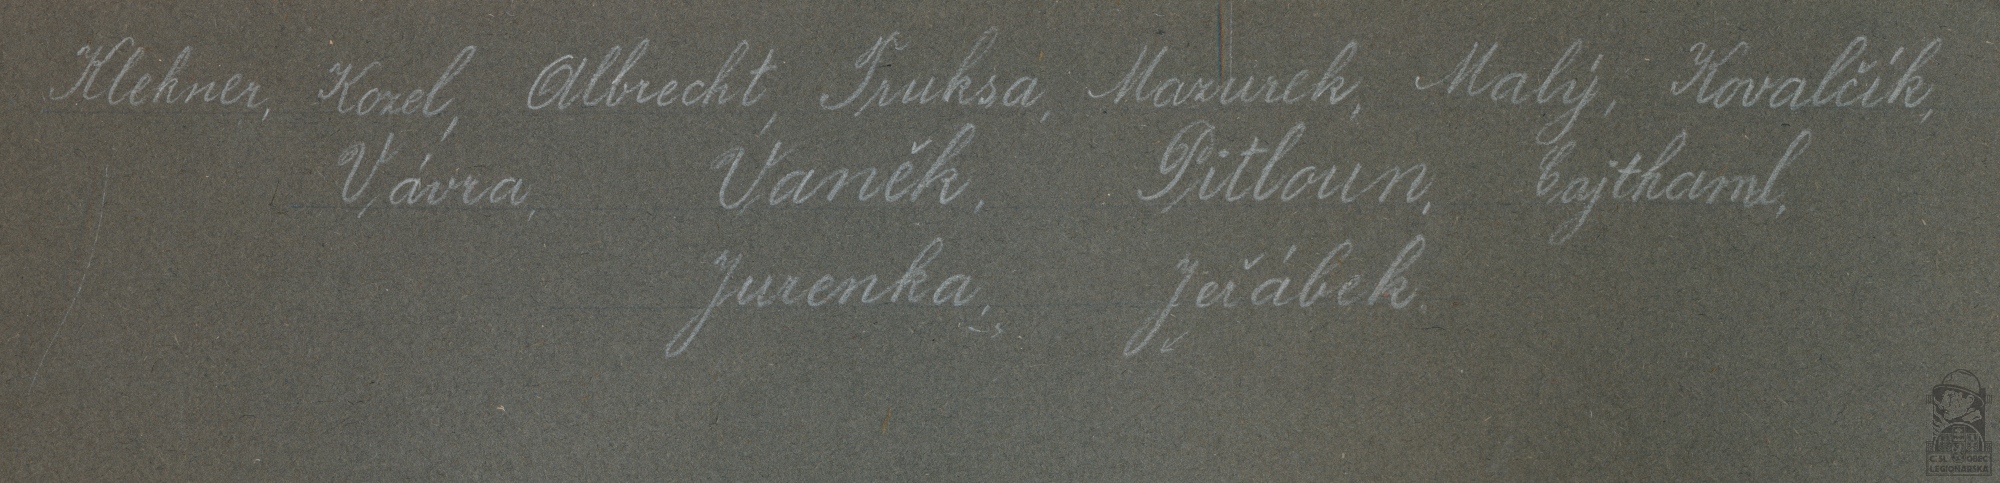 Klehner, Kozel, Albrecht, Truksa, Mazurek, Malý, Kovalčík,
Vávra, Vaněk, Pitloun, Cajthaml,
Jurenka, Jeřábek.
LEGIONÁŘSKÁ